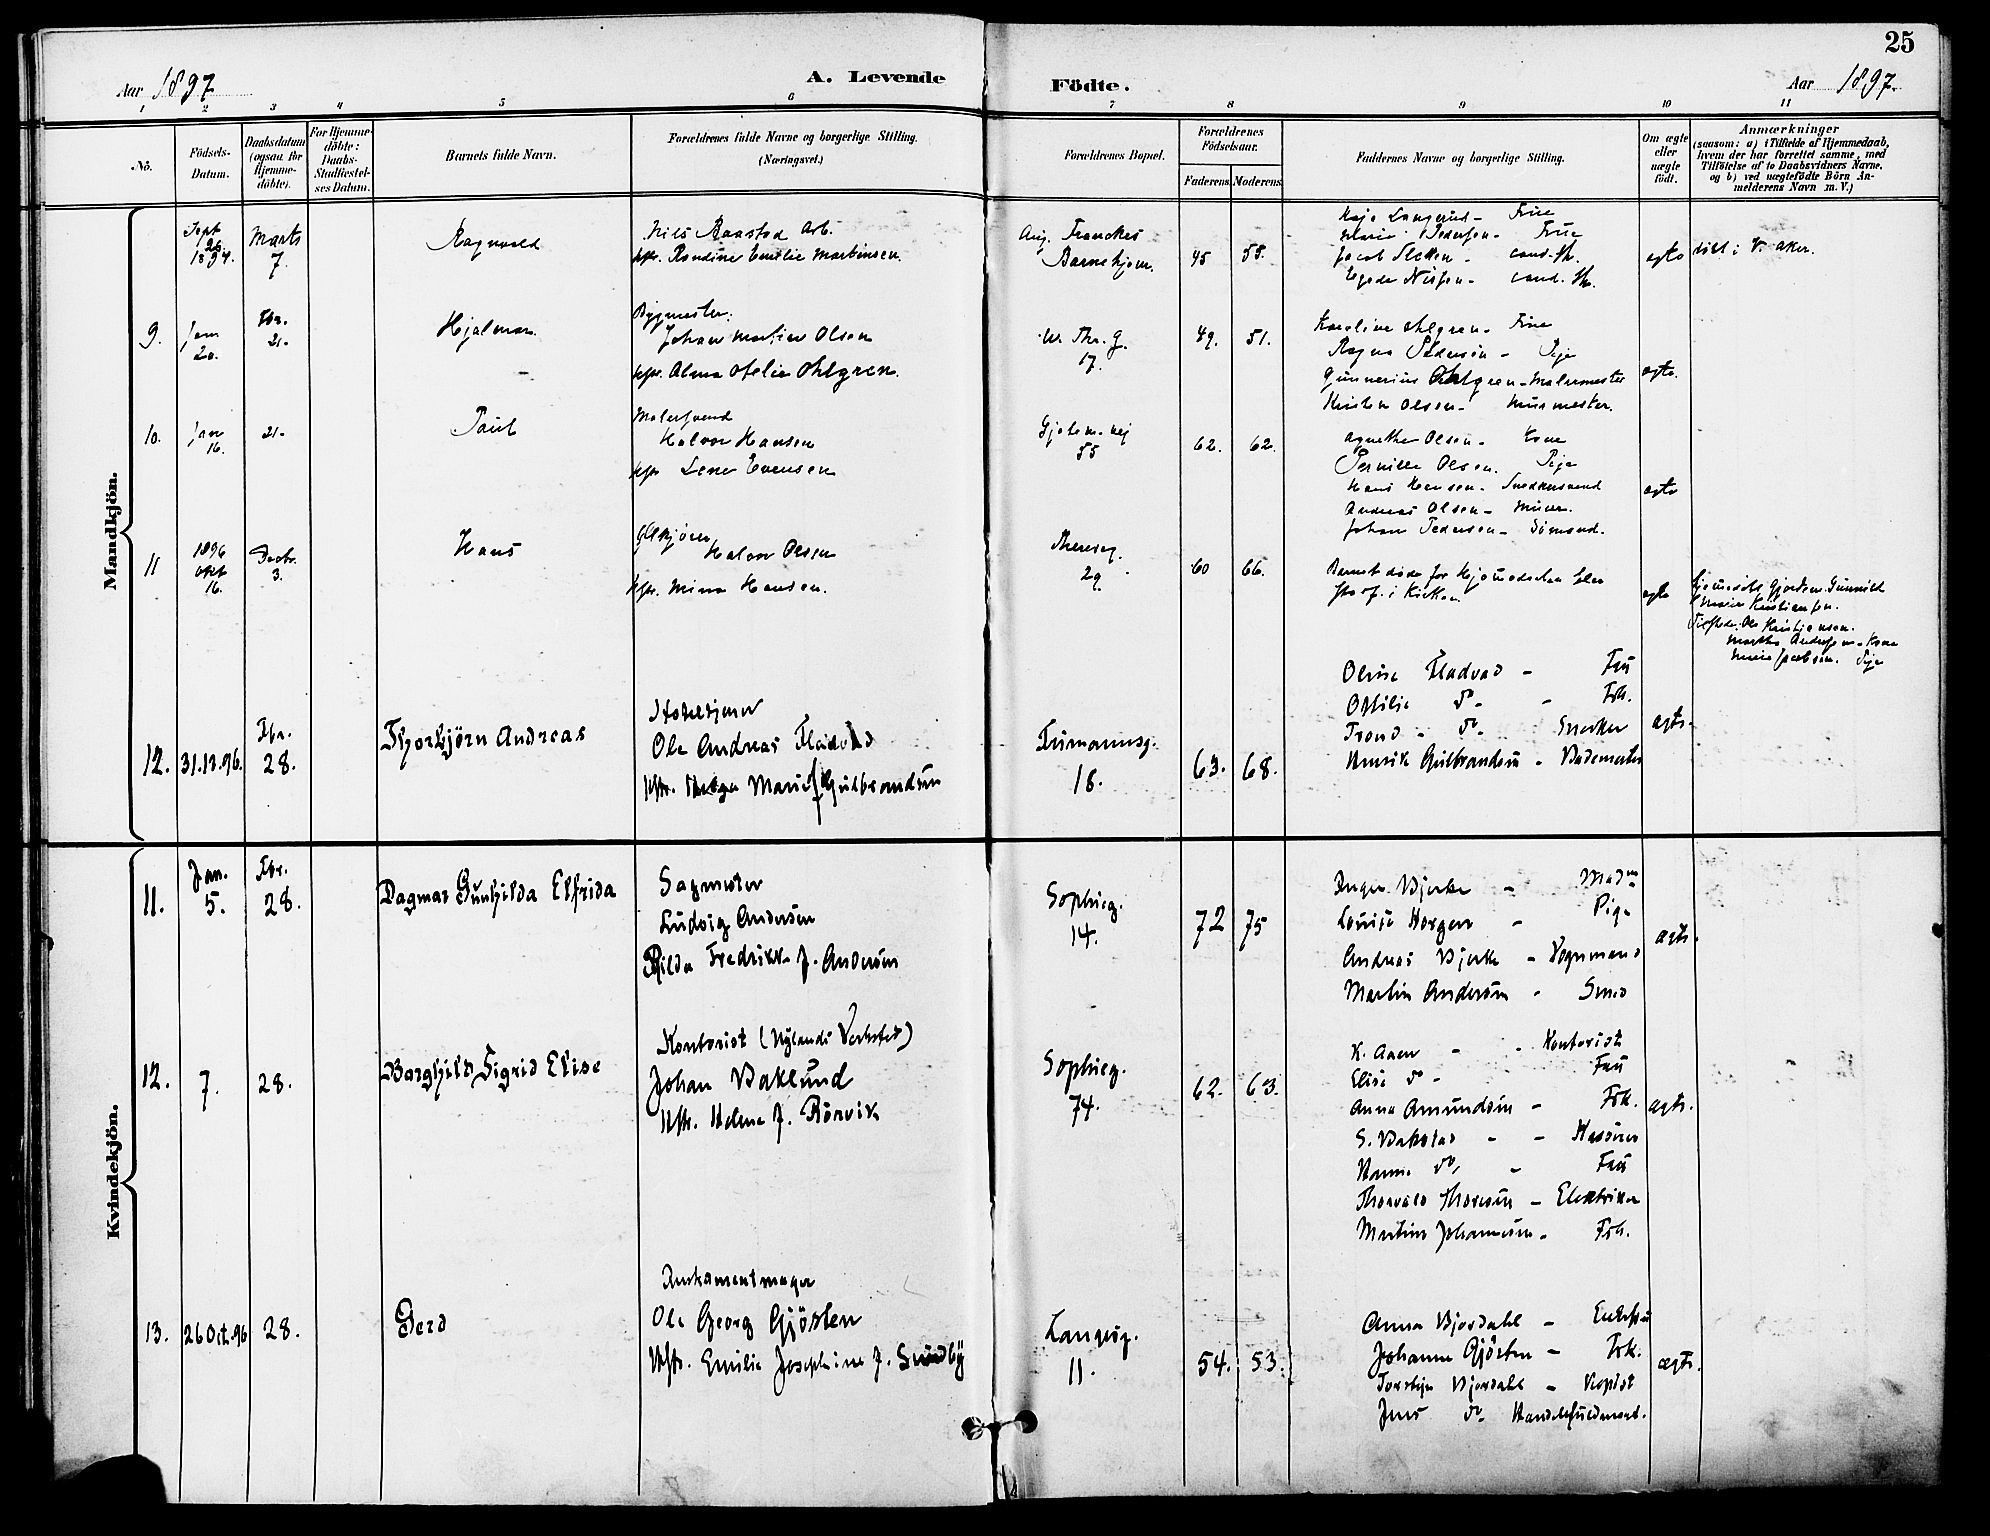 25
Aar 1897
A. Levende
Födte.
Aar 1897.
1 2 3 4 5 6 7 8 9 10 11
No.
Födsels-Datum.
Daabsdatum (ogsaa for Hjemme-döbte).
For Hjemme-döbte: Daabs-Stadfæstel-ses Datum.
Barnets fulde Navn.
Forældrenes fulde Navne og borgerlige Stilling.
(Næringsvei.)
Forældrenes Bopæl.
Forældrenes Födselsaar.
Faderens Moderens
Faddernes Navne og borgerlige Stilling.
Om ægte eller uægte födt.
Anmærkninger
(saasom: a) i Tilfælde af Hjemmedaab,
hvem der har forrettet samme, med
Tilföielse af to Daabsvidners Navne,
og b) ved uægtefödte Börn An-
melderens Navn m. V.)
Mandkjön.
Sept 26 1894.
Marts 7.
Ragnvald
Nils Raastad Arb.
Hst. Randine Emilie Martinsen.
Aug. Franckes
Barnehjem.
45 58.
Kaja Langerud - Frue
Marie Pedersen - Frue
Jacob Sletten - cand. th.
Egede Nissen - cand. th.
ægte
döbt i V. Aker.
9. Jan 20. Fbr. 21.
Hjalmar
Bygmester
Johan Martin Olsen
Hst. Alma Ofelia Ohlgren.
Ur. Thr. g.
17.
49. 51.
Karoline Ohlgren - Frue
Ragna Pedersen - Pige
Gunnerius Ohlgren - Malermester
Kristen Olsen - Murmester.
ægte.
10. Jan 16. 21.
Paul
Malersvend
Halvor Hansen
Hst. Lene Evensen
55
62. 62.
Agnethe Olsen - Kone
Pernille Olsen. Pige
Hans Hansen - Snedkersvend
Andreas Olsen - Murer.
Johan Pedersen - Sömand.
ægte
11 1896 Okt 16. Decbr. 3.
Hans
Halvor Olsen
Hst. Mina Hansen.
Thereseg.
29.
60 66.
Barnet döde for Hjemmedaaben blev
stadf. i Kirken.
ægte
Hjemmedöbt Gjordem. Gunnhild
Marie Kristiansen.
Tilstede: Ole Kristiansen.
Martha Andersen - Kone
Marie Jacobsen. Pige
12. 31.12.96. Fbr. 28.
Thorbjörn Andreas
Hoteltjener
Ole Andreas Fladvad
Hst. Helga Marie f. Gulbrandsen
18.
63. 68.
Oluse Fladvad - Fru
Ottilie do - Frk.
Trond - do - Snedker
Henrik Gulbrandsen - Bademester
ægte.
Kvindekjön.
11. Jan. 5. Fbr. 28.
Dagmar Gunhilda Elfrida
Sagmester
Ludvig Andersen
Hilda Fredrikke f. Andersen
Sophieg.
14.
72 75
Inger Bjerke - Madm
Louise Horgen - Pige
Andreas Bjerke - Vognmand
Martin Andersen - Smed
ægte.
12. 7. 28.
Borghild Sigrid Elise
Kontorist (Nylands Verksted)
Johan Baklund
Hst. Helene f. Rörvik
Sophieg.
74.
62. 63.
K. Aaen - - Kontorist
Elise do - Fru
Anna Amundsen - Frk.
S. Bakstad - - Kasserer
Hanna do, - Fru
Thorvald Thoresen - Elektriker
Martine Johannesen - Frk.
ægte.
13. 26 Oct. 96 28.
Gerd
Instrumentmager
Ole Georg Gjösten
Hst. Emilie Josephine f. Sundby
Langesg.
11.
54. 53.
Anna Bjordahl - Enkefru
Johanne Gjösten - Frk.
Torstein Bjordahl - Kopist
Jens do - Handelsfuldmægt.
ægte.